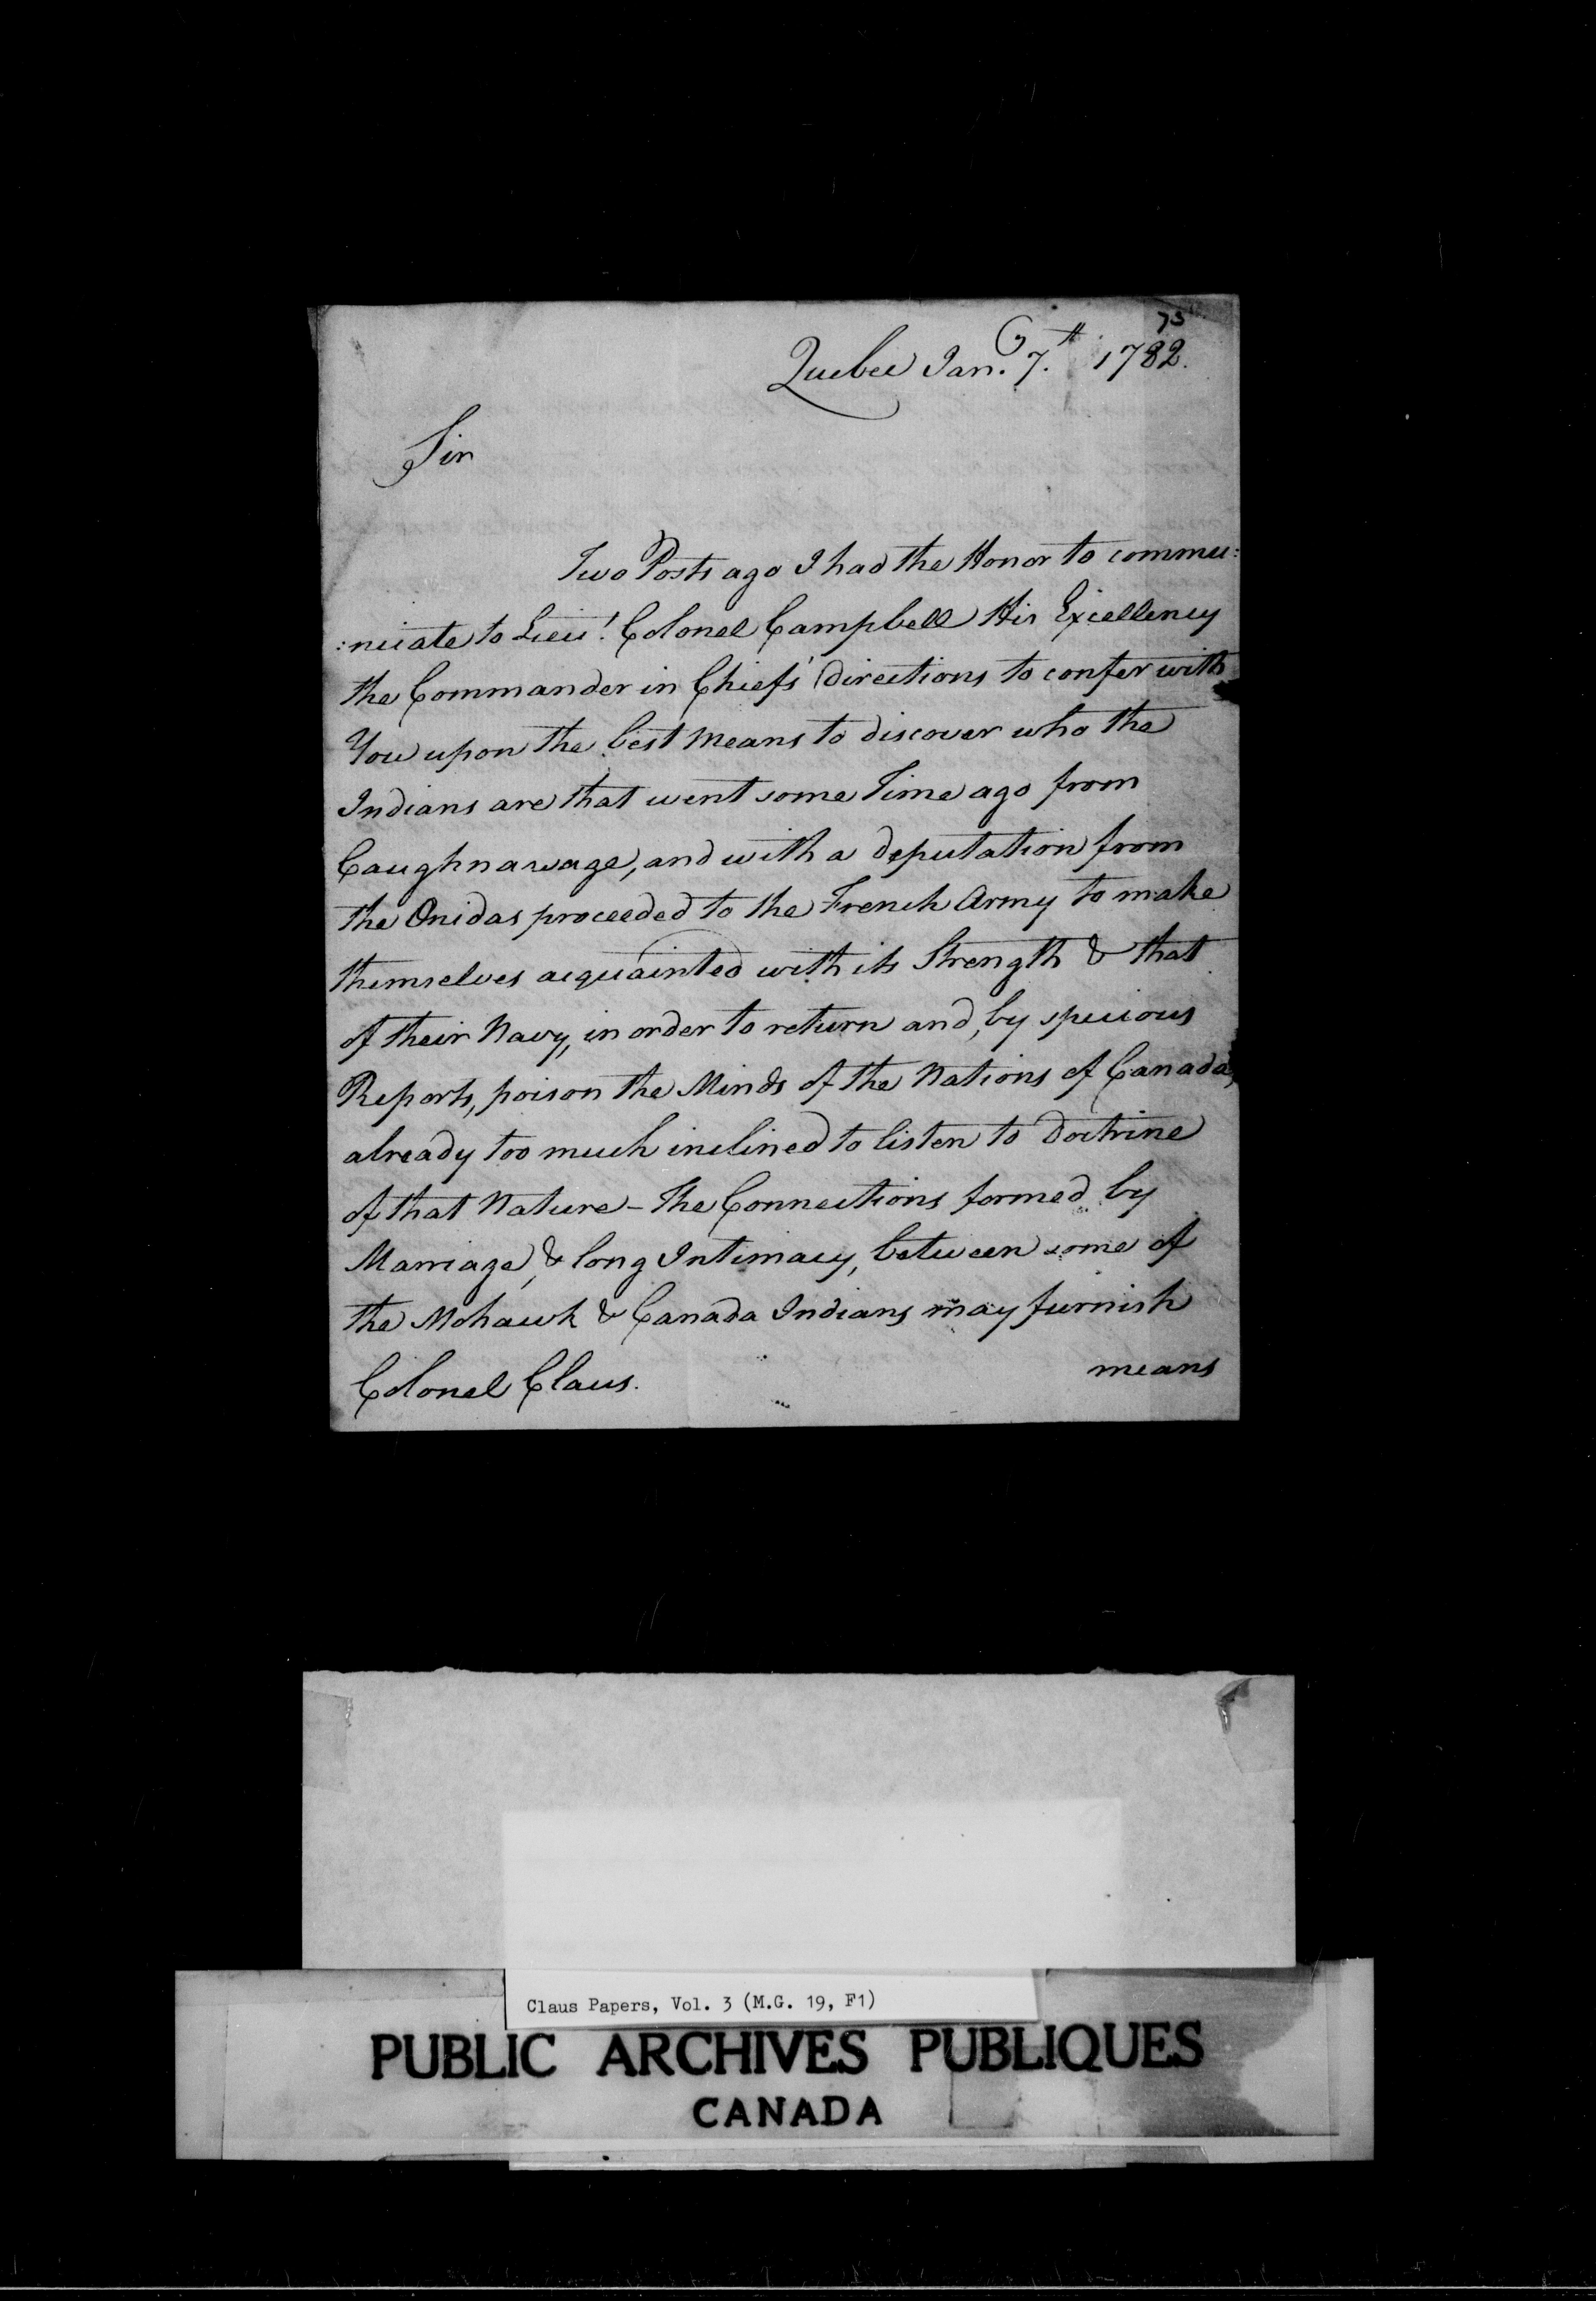 73
Quebec Jan.y 7.th 1782.
Sir
Two Posts ago I had the Honor to commu:
:nicate to Lieu.t Colonel Campbell His Excellency
the Commander in Chiefs' directions to confer with
You upon the best means to discover who the
Indians are that went some Time ago from
Caughnawage, and with a deputation from
the Onidas proceeded to the French Army to make
themselves acquainted with its Strength & that
of their Navy, in order to return and, by specious
Reports, poison the Minds of the Nations of Canada,
already too much inclined to listen to Doctrine
of that Nature - The Connections formed by
Marriage, & long Intimacy, between some of
the Mohawk & Canada Indians may furnish
means
Colonel Claus.
Claus Papers, Vol. 3 (M.G. 19, F1)
PUBLIC ARCHIVES PUBLIQUES
CANADA